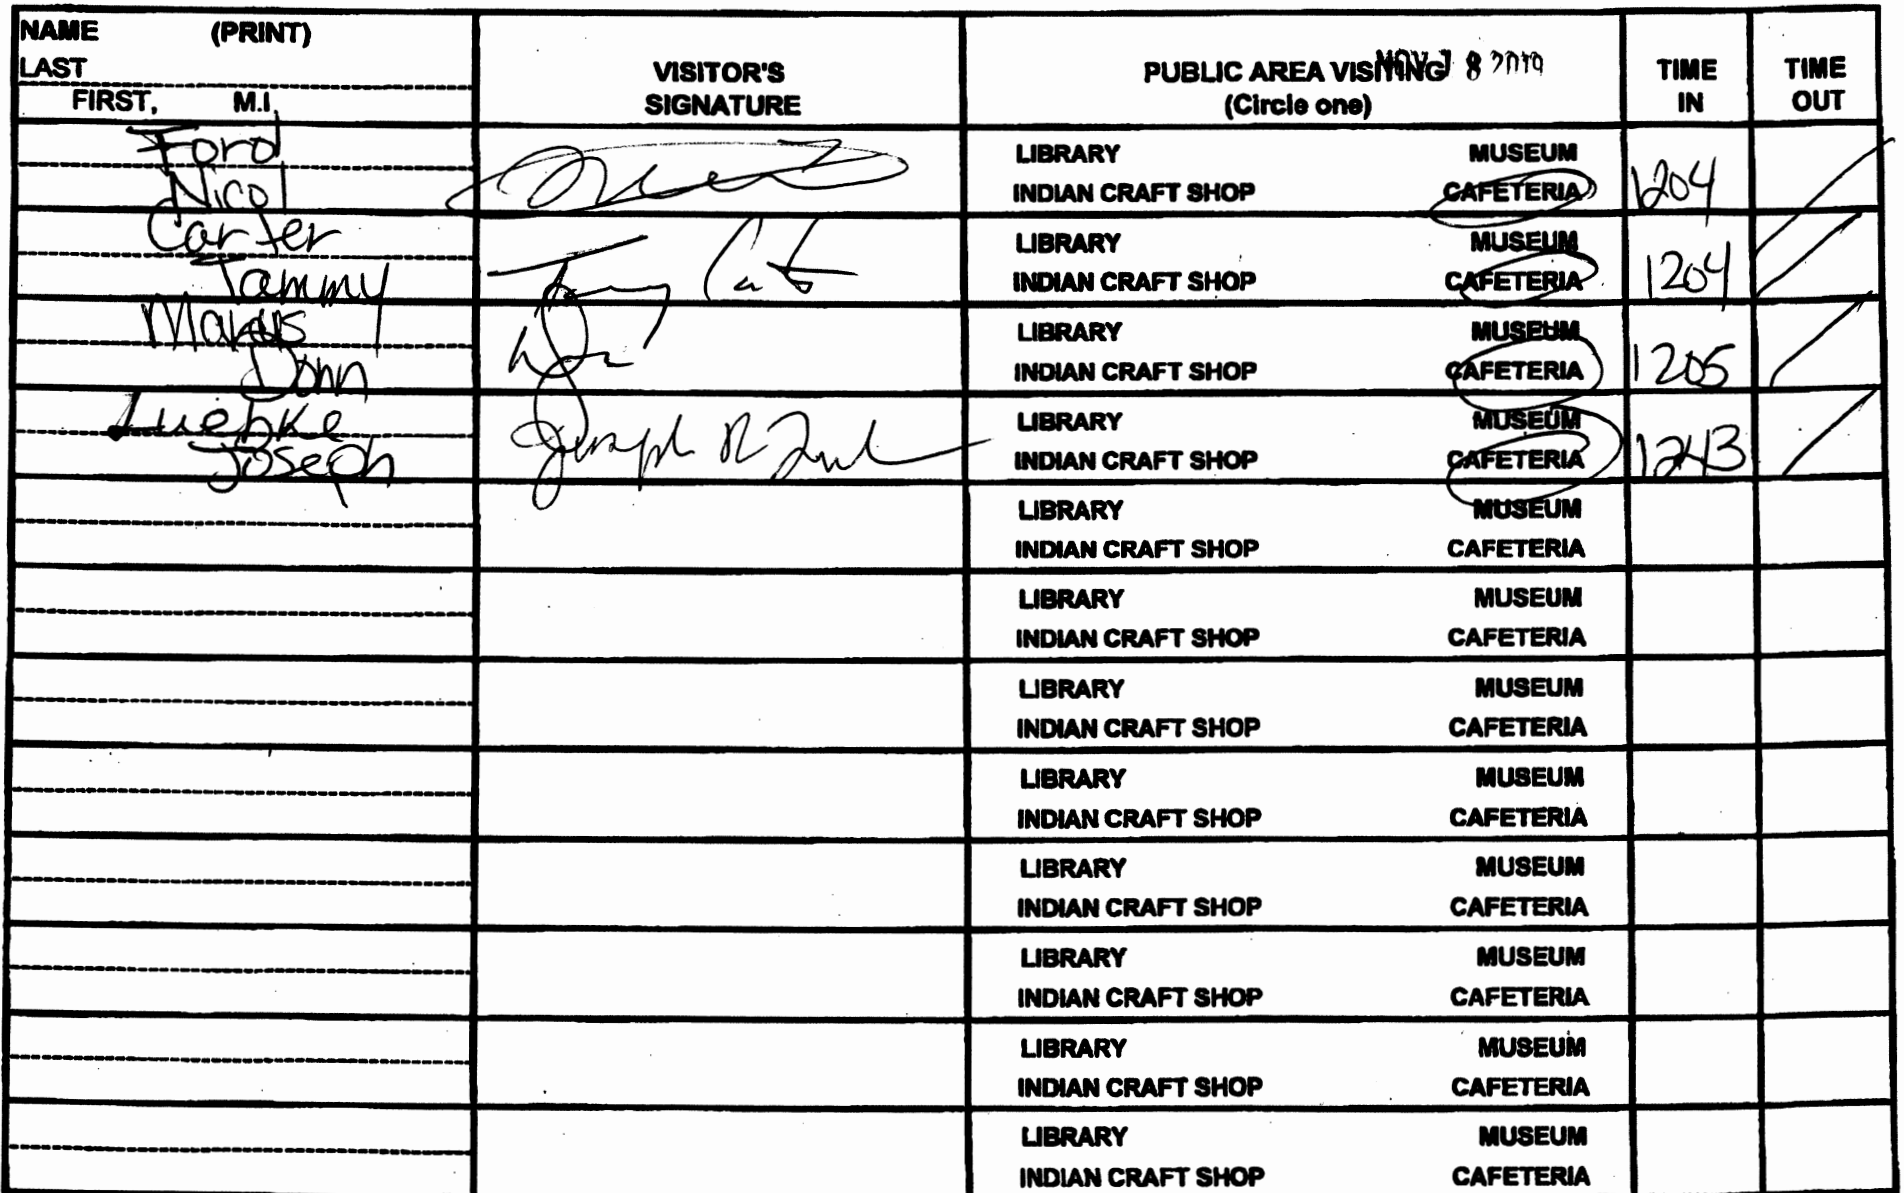 NAME (PRINT)
LAST
FIRST, M.I.
VISITOR'S
SIGNATURE
PUBLIC AREA VISITING NOV 18 2019
(Circle one)
TIME
IN
TIME
OUT
Ford
Nicol
LIBRARY MUSEUM
INDIAN CRAFT SHOP CAFETERIA
1204
Carter
Tammy
Tammy
LIBRARY MUSEUM
INDIAN CRAFT SHOP CAFETERIA
1204
Donn
LIBRARY MUSEUM
INDIAN CRAFT SHOP CAFETERIA
1205
Luebke
Joseph
Joseph R
LIBRARY MUSEUM
INDIAN CRAFT SHOP CAFETERIA
1243
LIBRARY MUSEUM
INDIAN CRAFT SHOP CAFETERIA
LIBRARY MUSEUM
INDIAN CRAFT SHOP CAFETERIA
LIBRARY MUSEUM
INDIAN CRAFT SHOP CAFETERIA
LIBRARY MUSEUM
INDIAN CRAFT SHOP CAFETERIA
LIBRARY MUSEUM
INDIAN CRAFT SHOP CAFETERIA
LIBRARY MUSEUM
INDIAN CRAFT SHOP CAFETERIA
LIBRARY MUSEUM
INDIAN CRAFT SHOP CAFETERIA
LIBRARY MUSEUM
INDIAN CRAFT SHOP CAFETERIA